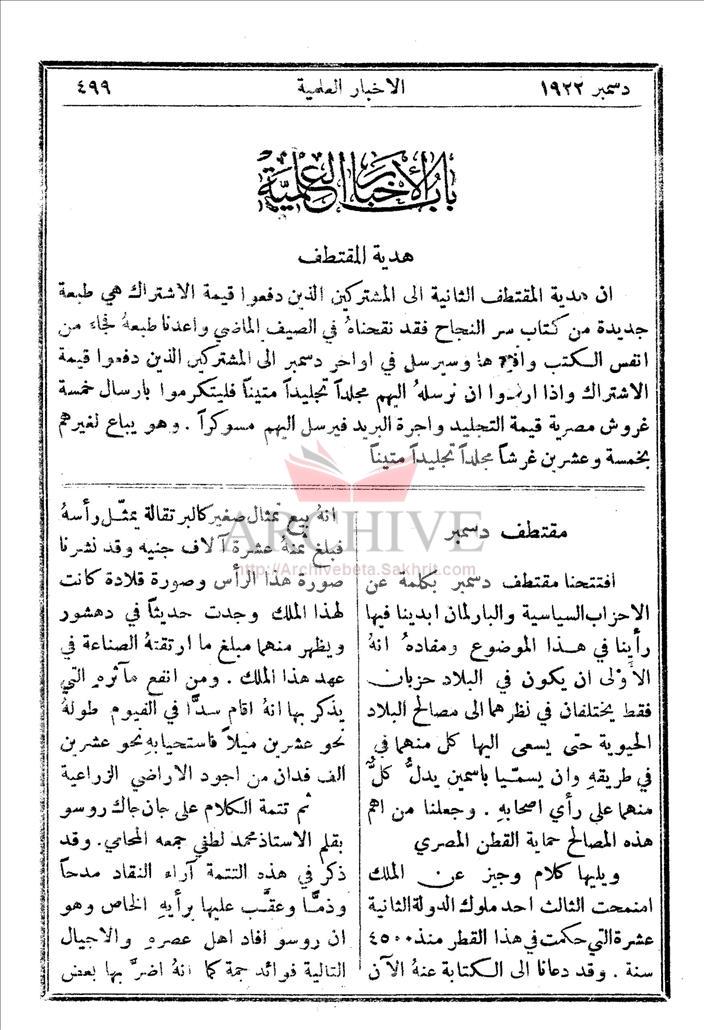 دسمبر ١٩٢٢ الاخبار العلمية ٤٩٩
باب الأخبار العلمية
هدية المقتطف
ان هدية المقتطف الثانية الى المشتركين الذين دفعوا قيمة الاشتراك هي طبعة
جديدة من كتاب سر النجاح فقد نقحناهُ في الصيف الماضي واعدنا طبعهُ فجاء من
انفس الكتب وسيرسل في اواخر دسمبر الى المشتركين الذين دفعوا قيمة
الاشتراك واذا ارادوا ان نرسلهُ اليهم مجلداً تجليداً متيناً فليتكرموا بارسال خمسة
غروش مصرية قيمة التجليد واجرة البريد فيرسل اليهم مسوكراً . وهو يباع لغيرهم
بخمسة وعشرين غرشاً مجلداً تجليداً متيناً
مقتطف دسمبر
افتتحنا مقتطف دسمبر بكلمة عن
الاحزاب السياسية والبارلمان ابدينا فيها
رأينا في هذا الموضوع ومفادهُ انهُ
الأَولى ان يكون في البلاد حزبان
فقط يختلفان في نظرهما الى مصالح البلاد
الحيوية حتى يسعى اليها كل منهما في
في طريقهِ وان يسمّيا باسمين يدلُّ كلٌّ
منهما على رأي اصحابهِ . وجعلنا من اهم
هذه المصالح حماية القطن المصري
ويليها كلام وجيز عن الملك
امنمحت الثالث احد ملوك الدولة الثانية
عشرة التي حكمت في هذا القطر منذ ٤٥٠٠
سنة . وقد دعانا الى الكتابة عنهُ الآن
انهُ بيع تمثال صغير كالبرتقالة يمثّل رأسهُ
فبلغ ثمنهُ عشرة آلاف جنيه وقد نشرنا
صورة هذا الرأس وصورة قلادة كانت
لهذا الملك وجدت حديثاً في دهشور
ويظهر منهما مبلغ ما ارتقتهُ الصناعة في
عهد هذا الملك . ومن انفع مآثرهِ التي
يذكر بها انهُ اقام سدًّا في الفيوم طولهُ
نحو عشرين ميلاً فاستحيا بهِ نحو عشرين
الف فدان من اجود الاراضي الزراعية
ثم تتمة الكلام على جان جاك روسو
بقلم الاستاذ محمد لطفي جمعه المحامي . وقد
ذكر في هذه التتمة آراء النقاد مدحاً
وذمًّا وعقَّب عليها برأيهِ الخاص وهو
ان روسو افاد اهل عصرهِ والاجيال
التالية فوائد جمة كما انهُ اضرَّ بها بعض
ARCHIVE
http://Archivebeta.Sakhrit.com